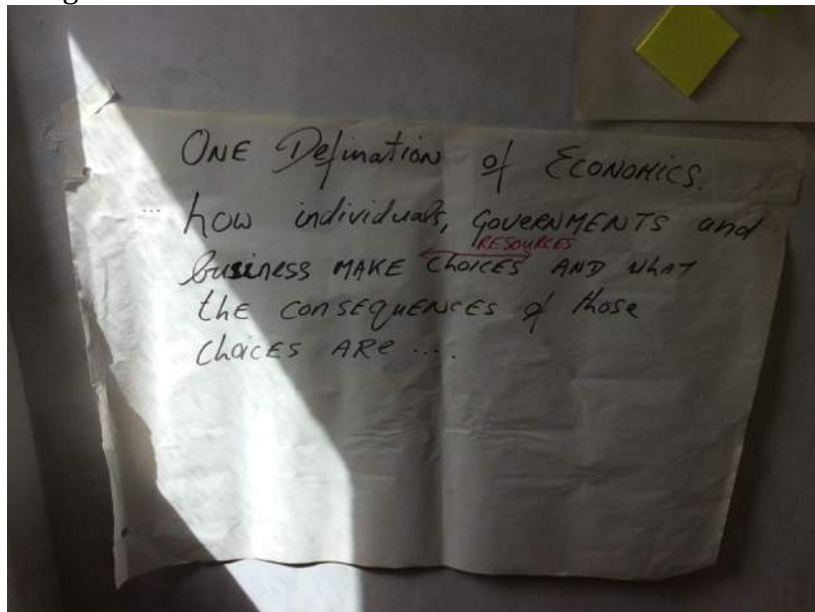 ONE Defination of ECONOMICS.
... how individuals, GOVERNMENTS and
RESOURCES
business MAKE CHOICES AND WHAT
the CONSEQUENCES of those
CHOICES ARE ....